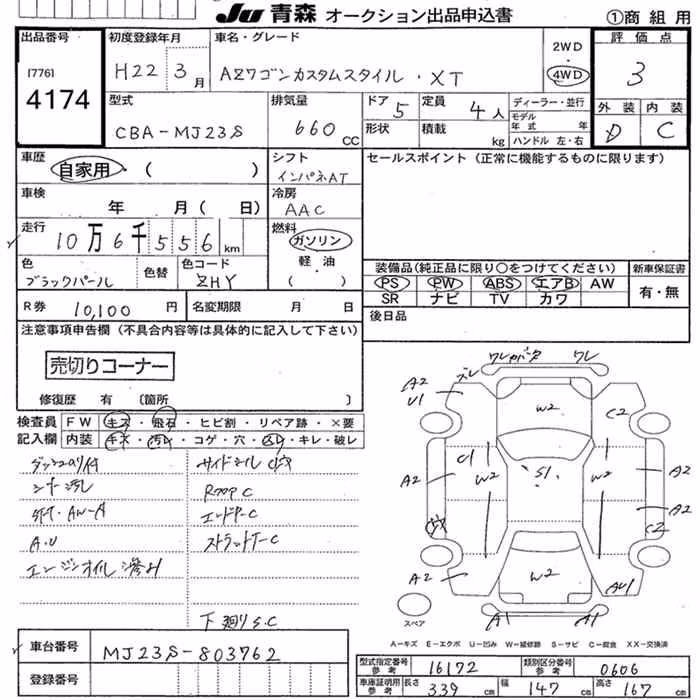 JU 青森 オークション出品申込書
①商組用
出品番号
(776)
4174
初度登録年月
H22 3月
車名・グレード
AZワゴンカスタムスタイル・XT
2WD
4WD
評価点
3
外装 内装
D C
型式
CBA-MJ23S
排気量
660 CC
ドア 5
形状
定員 4人
積載 kg
ディーラー・並行
モデル年式 年
ハンドル 左・右
車歴
自家用 ( )
シフト
インパネAT
車検
年 月( 日)
冷房
AAC
走行
10万6千556km
燃料
ガソリン
軽・油
( )
色
ブラックパール
色替
色コード
ZHY
R券 10,100円
名変期限 月 日
セールスポイント(正常に機能するものに限ります)
装備品(純正品に限り○をつけてください)
新車保証書
PS PW ABS エアB AW
SR ナビ TV カワ
有・無
後日品
注意事項申告欄(不具合内容等は具体的に記入して下さい)
売切りコーナー
修復歴 有 〔箇所 〕
検査員記入欄
FW キズ・飛石・ヒビ割・リペア跡・×要
内装 キズ・汚レ・コゲ・穴・スレ・キレ・破レ
シート汚レ
A・U
エンジンオイル滲み
エンドアーC
下廻りS.C
ワレ
A2
U1
W2
C2
C1
W2
S1
W2
A2
A2
A2
C2
A2
W2
AU1
A1
A1
スペア
A-キズ E-エクボ U-凹み W-補修跡 S-サビ C-腐食 XX-交換済
車台番号
MJ23S-803762
登録番号
型式指定番号参考 16172
類別区分番号参考 0606
車庫証明用参考 長さ 339cm 幅 147cm 高さ 167cm